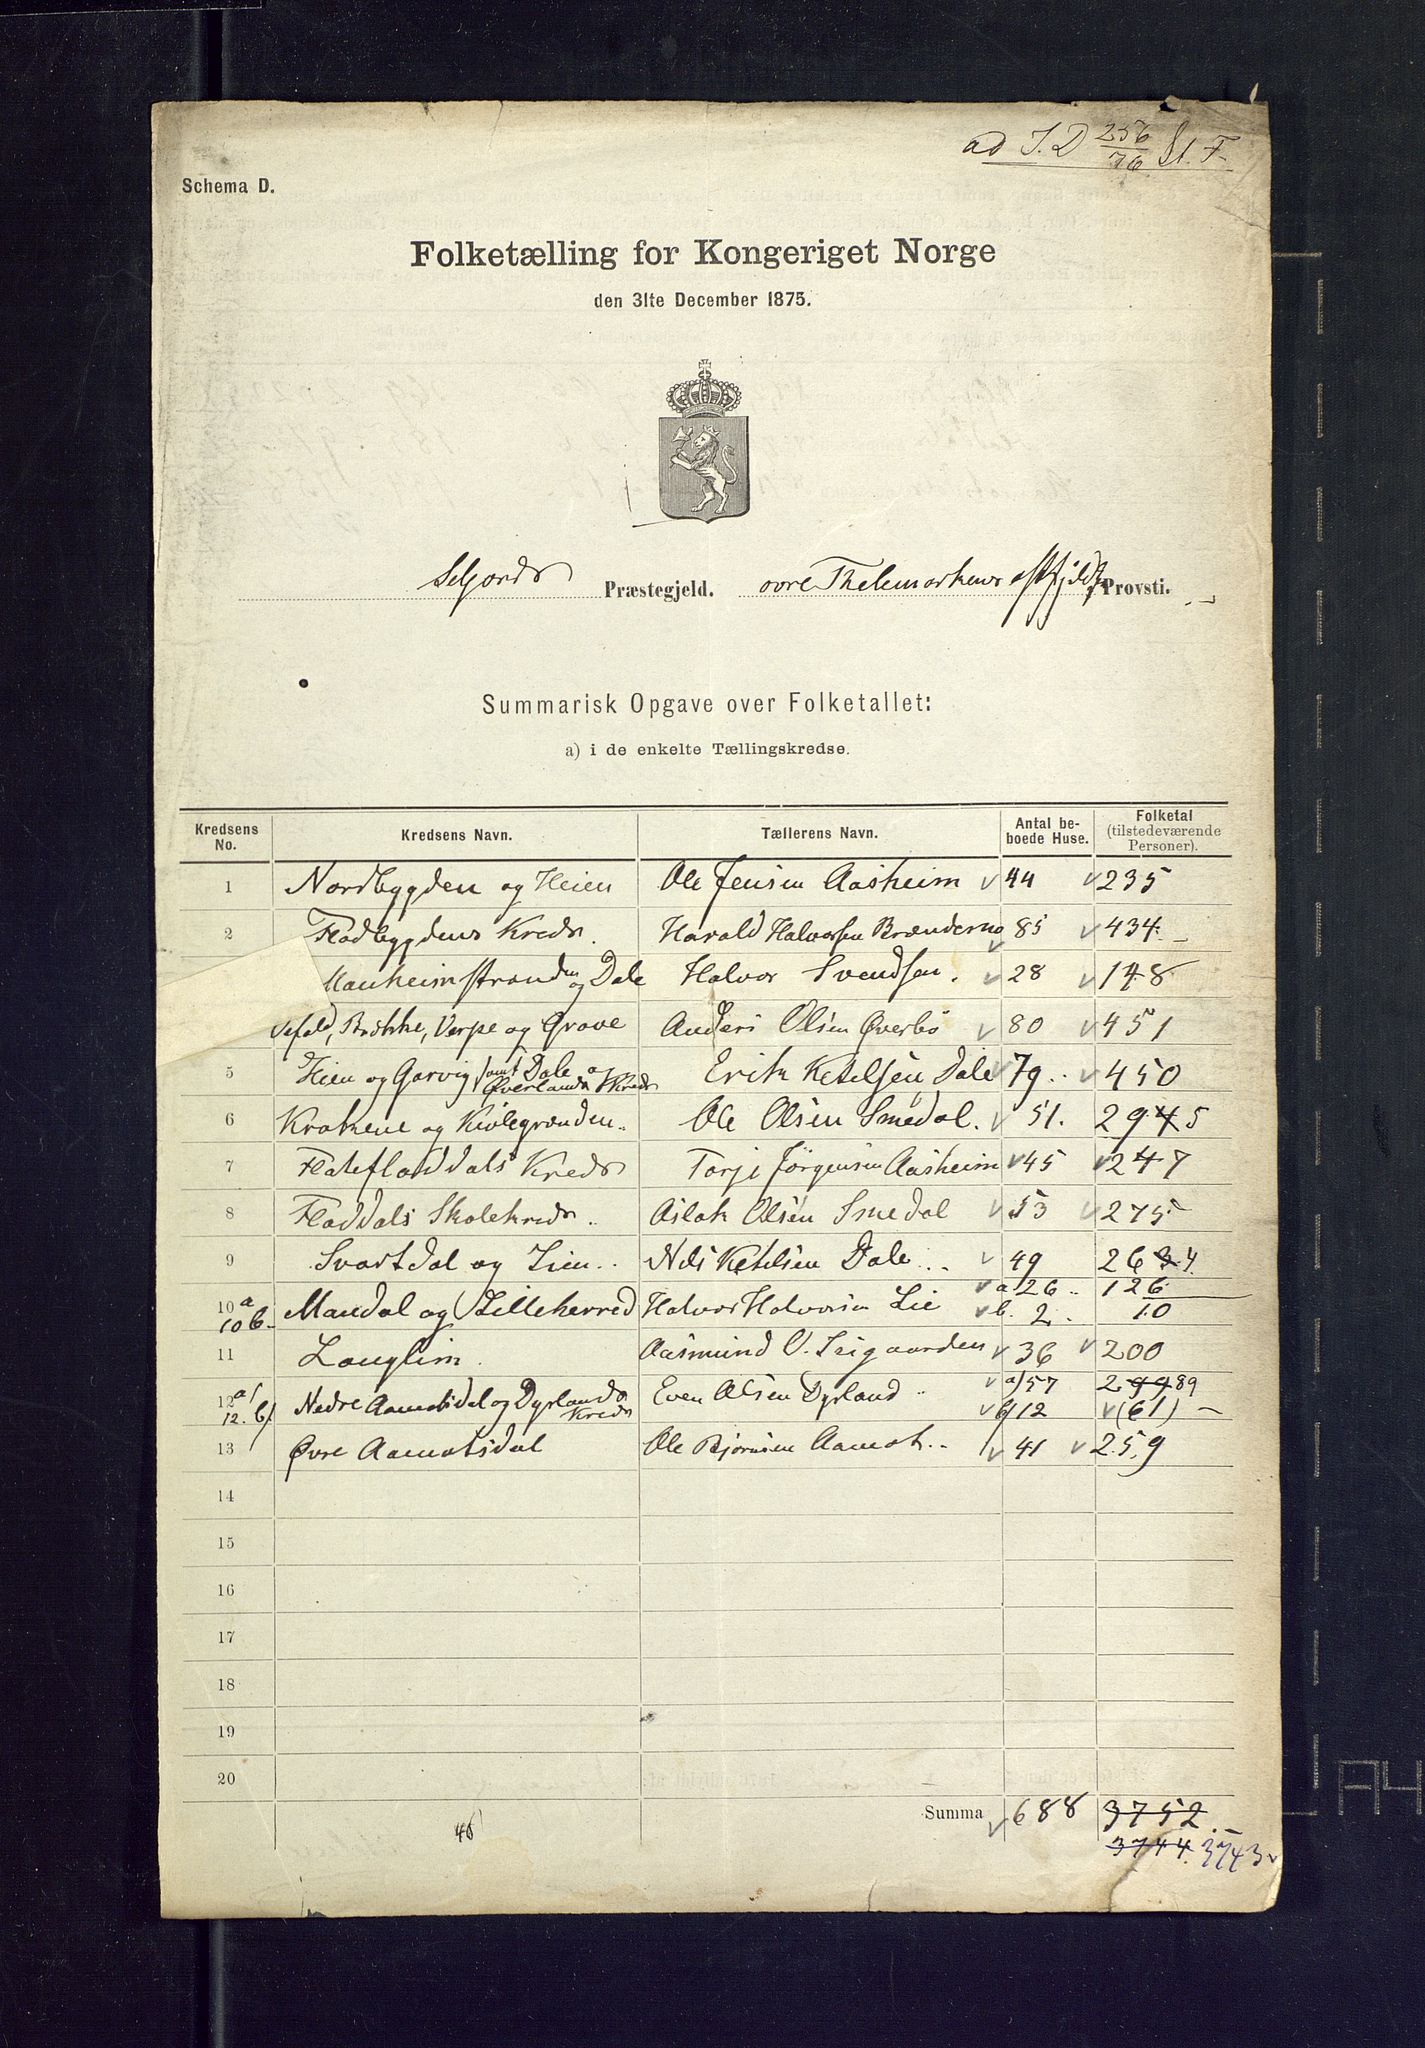 ad J. D 256/76 St. F.
Schema D.
Folketælling for Kongeriget Norge
den 31te December 1875.
Præstegjeld. øvre Thelemarkens Provsti.
Summarisk Opgave over Folketallet:
a) i de enkelte Tællingskredse.
Kredsens No. Kredsens Navn. Tællerens Navn. Antal beboede Huse. Folketal (tilstedeværende Personer).
1 Nordbygden og Heien Ole Jensen Aasheim 44 235
2 Fladbygdens Kreds. Harald Halvorsen 85 434
Manheimstranden og Dale Halvor Svendsen. 28 148
Brække, Verpe og Grave Anders Olsen Øverbø 80 451
5 Heien og Garvig samt Dale og Øverlands Kreds Erik Ketelsen Dale 79 450
6 Krokene og Kivlegrænden.. Ole Olsen Smedal. 51. 2945
7 Flatefladdals Kreds Torje Jørgensen Aasheim 45 247
8 Fladdals Skolekreds.. Aslak Olsen Smedal 53 275
9 Svartdal og Lien.. Nels Ketelsen Dale.. 49 2634
10 a Mandal og Lilleherred Halvor Halvorsen Lie a/26.. 126
10 b. b. 2. 10
11 Langlim. Aasmund O. 36 200
12 a/ Nedre Aamotsdal og Dyrlands Kreds Even Olsen Dyrland.. a/57 29989
12. b/ b/12 (61)
13 Øvre Aamotsdal Ole Bjørnsen Aamot.. 41 259
14
15
16
17
18
19
20
Summa 688 3752.
46
3744. 3743